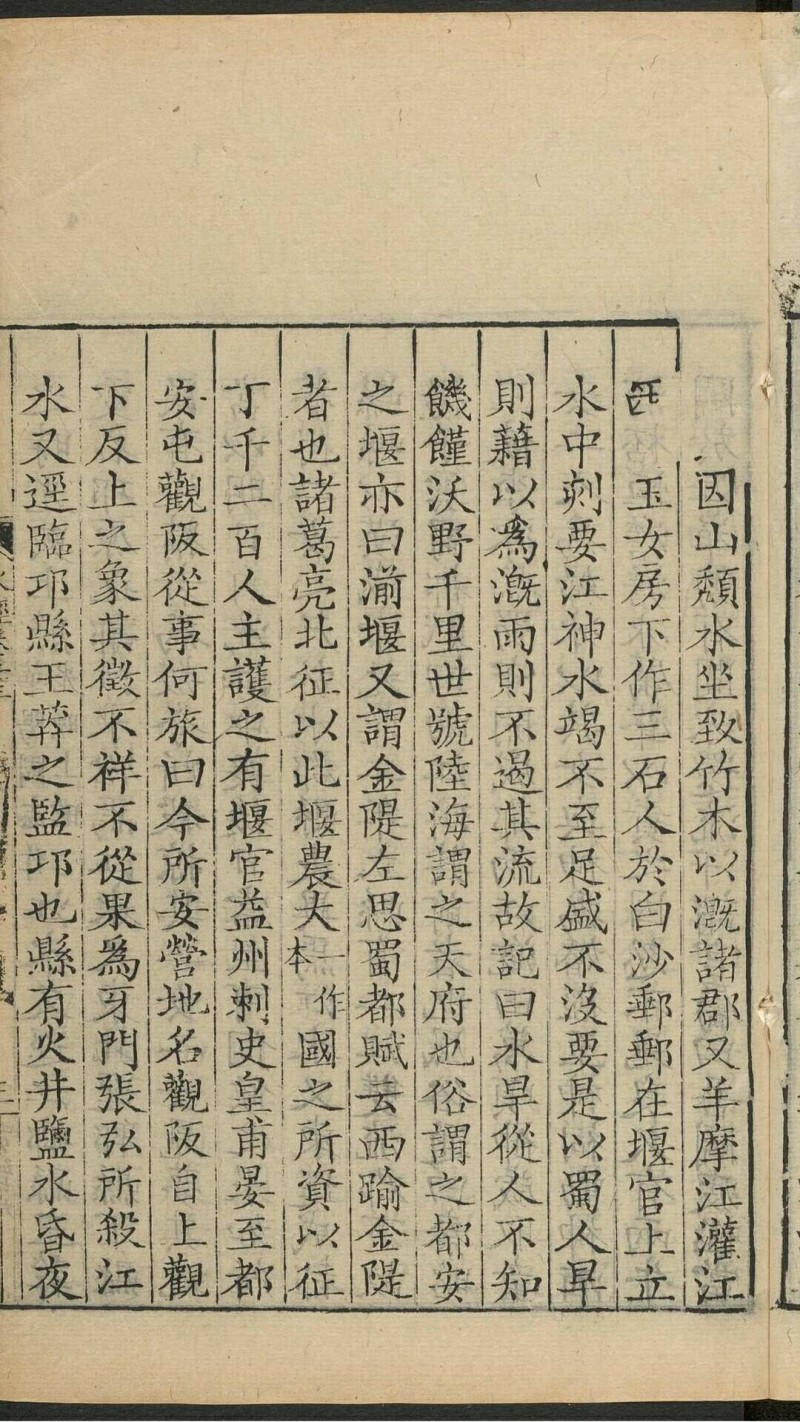 因山頽水坐致竹木以漑諸郡又羊摩江灌江
西　玉女房下作三石人於白沙郵郵在堰官上立
水中刺要江神水竭不至足盛不沒要是以蜀人旱
則藉以爲漑雨則不遏其流故記曰水旱從人不知
饑饉沃野千里世號陸海謂之天府也俗謂之都安
之堰亦曰湔堰又謂金隄左思蜀都賦云西踰金隄
者也諸葛亮北征以此堰農大一作本國之所資以征
丁千二百人主護之有堰官益州刺史皇甫晏至都
安屯觀阪從事何旅曰今所安營地名觀阪自上觀
下反上之象其徵不祥不從果爲牙門張弘所殺江
水又逕臨邛縣王莽之監邛也縣有火井鹽水昏夜